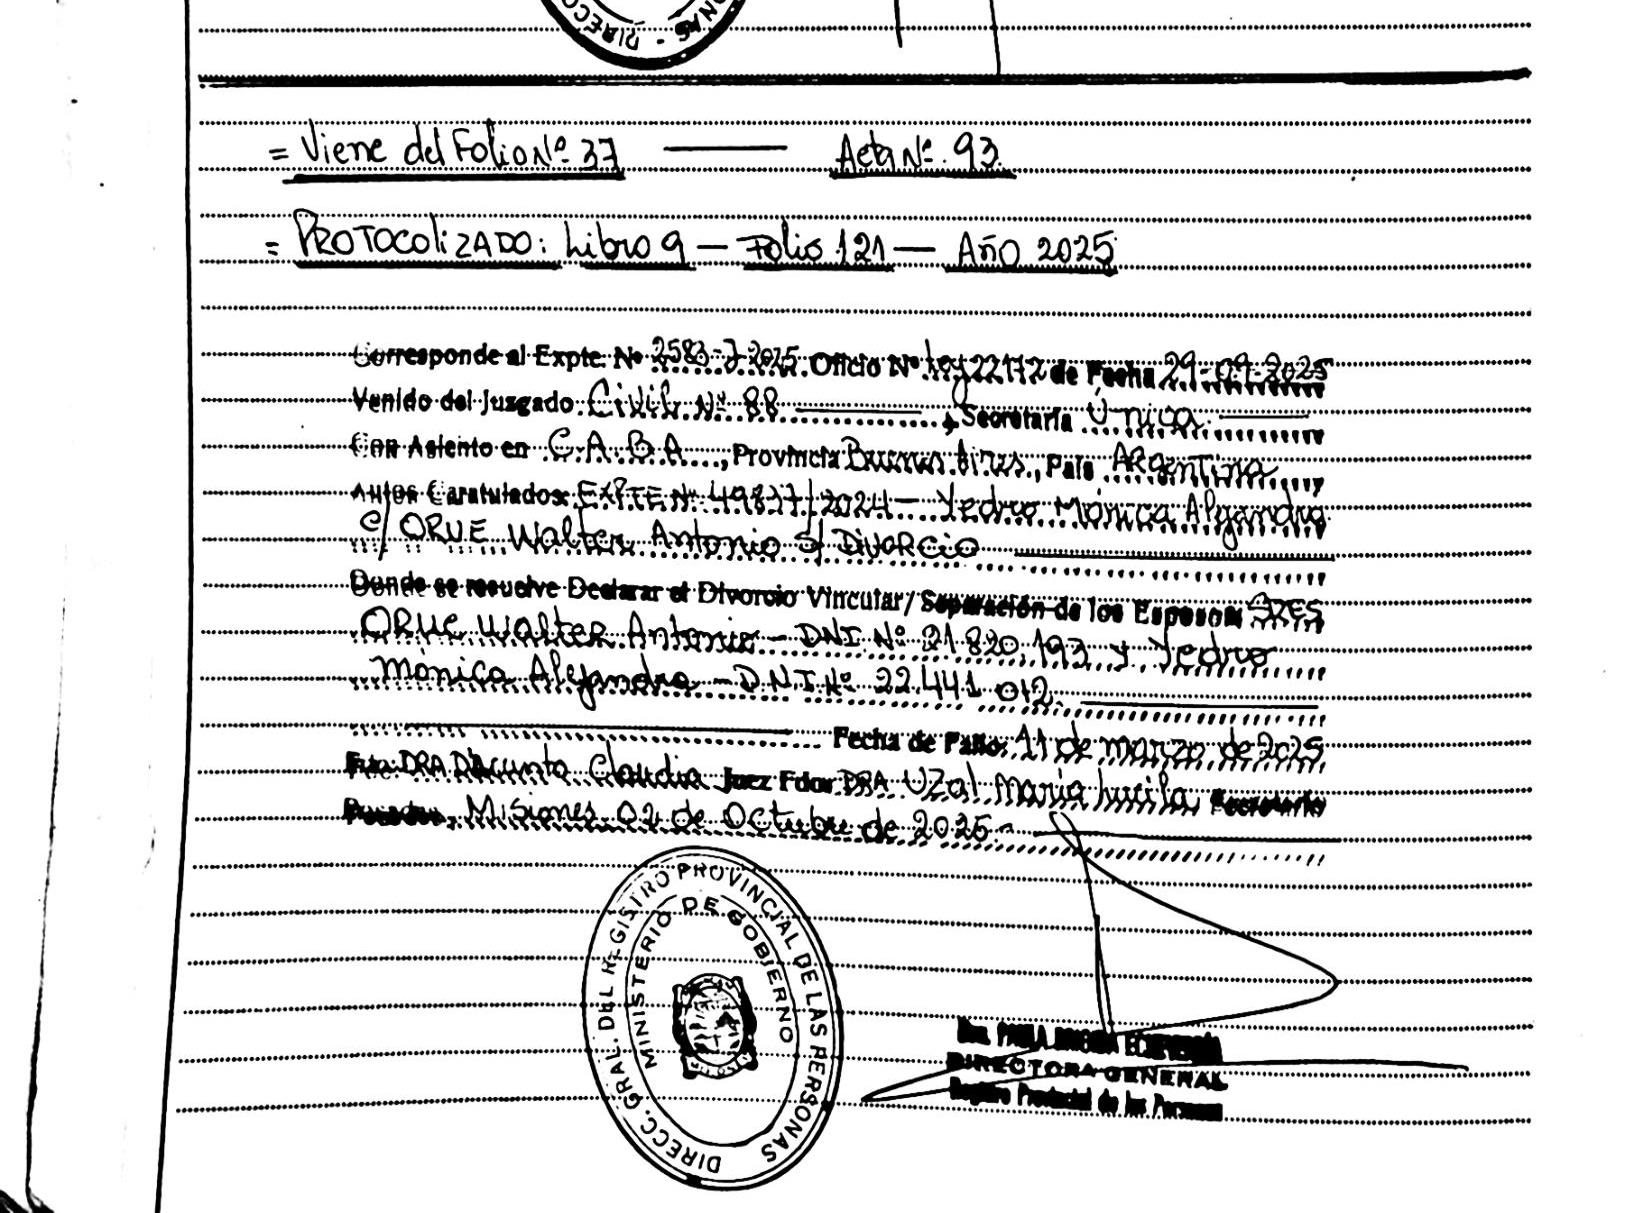 = Viene del Folio Nº 37 — Acta Nº 93
= PROTOCOLIZADO: Libro 9 — Folio 121 — AÑO 2025
Corresponde al Expte. Nº 2583-J-2025 Oficio Nº Ley 22172 de Fecha 29-09-2025
Venido del Juzgado Civil Nº 88 , Secretaría Única
Con Asiento en C.A.B.A , Provincia Buenos Aires, País ARgentina
Autos Caratulados: EXPTE Nº 49837/2024 - Yedro Mónica Alejandra
c/ ORUE Walter Antonio S/ DivoRcio
Donde se resuelve Declarar el Divorcio Vincular/Separación de los Esposos: SRES
ORUE Walter Antonio - DNI Nº 21.820.193 y Yedro
Mónica Alejandra - DNI Nº 22.441.012
Fecha de Fallo: 11 de marzo de 2025
Fdo: DRA D'Acunto Claudia Juez Fdo: DRA UZal María Lucila Secretario
Posadas, Misiones, 02 de Octubre de 2025-
DIRECC. GRAL. DEL REGISTRO PROVINCIAL DE LAS PERSONAS
MINISTERIO DE GOBIERNO
Dra. PAULA ECHEVERRÍA
DIRECTORA GENERAL
Registro Provincial de las Personas